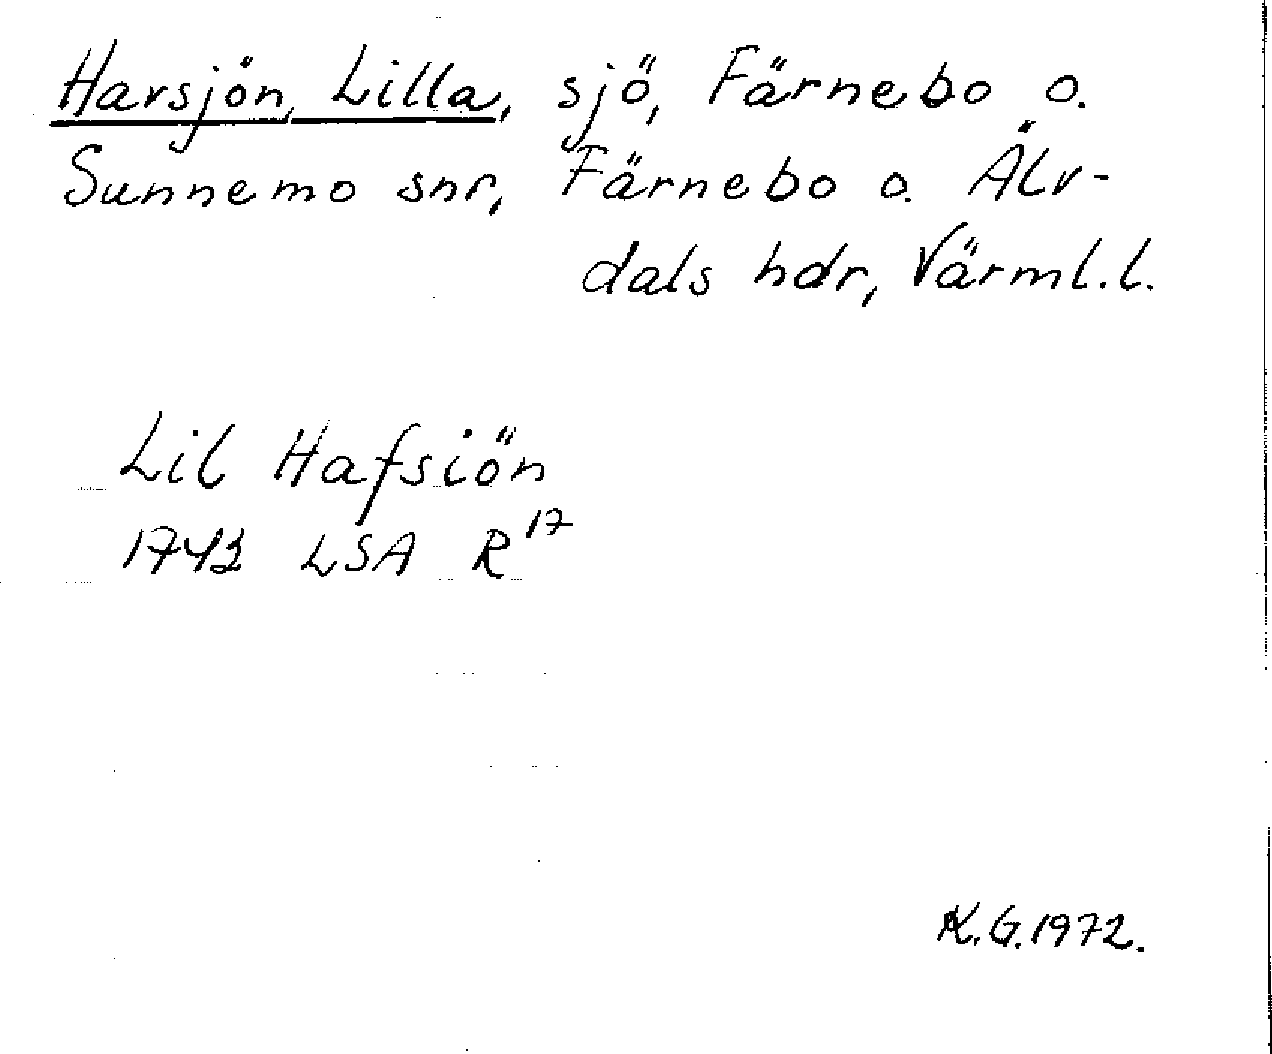 Havsjön, Lilla, sjö, Färnebo o.
Sunnemo snr, Färnebo o. Älv-
dals hdr, Värml.l.
Lil Hafsiön
1743 LSA R17
K.G. 1972.